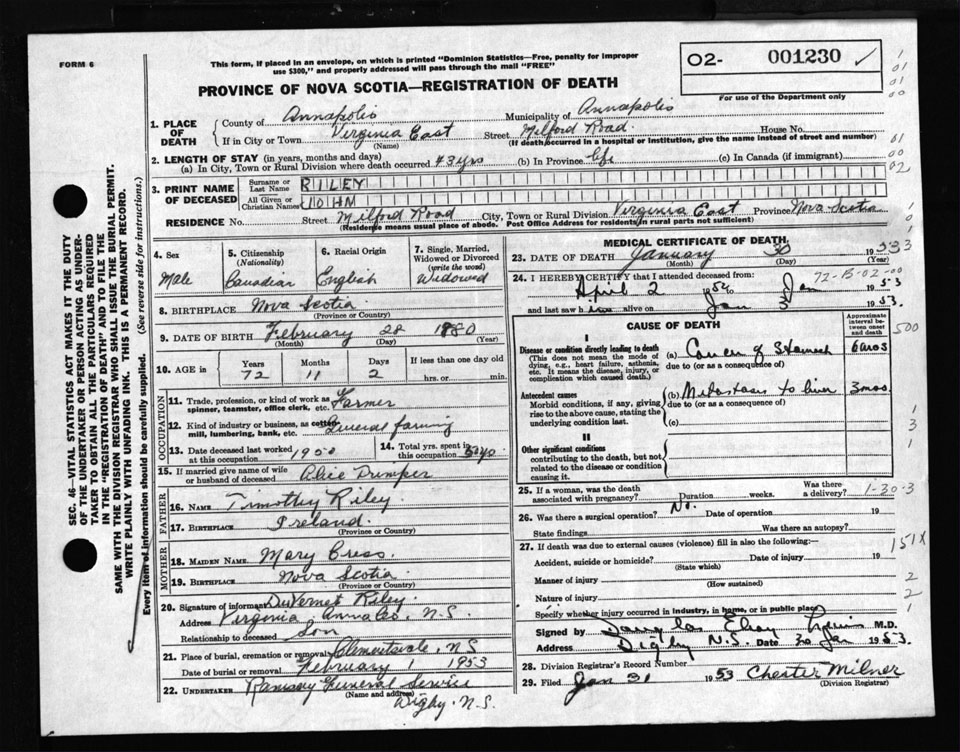 FORM 6
This form, if placed in an envelope, on which is printed "Dominion Statistics—Free, penalty for improper
use $300," and properly addressed will pass through the mail "FREE"
02- 001230 ✓
PROVINCE OF NOVA SCOTIA—REGISTRATION OF DEATH
For use of the Department only
1. PLACE OF DEATH
County of Annapolis Municipality of Annapolis
If in City or Town Virginia East Street Milford Road. House No.
(Name) (If death occurred in a hospital or institution, give the name instead of street and number)
2. LENGTH OF STAY (in years, months and days)
(a) In City, Town or Rural Division where death occurred 43 yrs (b) In Province life (c) In Canada (if immigrant)
3. PRINT NAME OF DECEASED
Surname or Last Name RILEY
All Given or Christian Names JOHN
RESIDENCE No. Street Milford Road City, Town or Rural Division Virginia East Province Nova Scotia
(Residence means usual place of abode. Post Office Address for residents in rural parts not sufficient)
4. Sex
Male
5. Citizenship
(Nationality)
Canadian
6. Racial Origin
English
7. Single, Married, Widowed or Divorced
(write the word)
Widowed
8. BIRTHPLACE Nova Scotia
(Province or Country)
9. DATE OF BIRTH February 28 1880
(Month) (Day) (Year)
10. AGE in Years Months Days If less than one day old
72 11 2 hrs. or min.
OCCUPATION
11. Trade, profession, or kind of work as spinner, teamster, office clerk, etc. Farmer
12. Kind of industry or business, as cotton mill, lumbering, bank, etc. General farming
13. Date deceased last worked at this occupation 1950
14. Total yrs. spent in this occupation 50 yrs.
15. If married give name of wife or husband of deceased Alice Dumper
FATHER
16. NAME Timothy Riley
17. BIRTHPLACE Ireland.
(Province or Country)
MOTHER
18. MAIDEN NAME Mary Cress.
19. BIRTHPLACE Nova Scotia
(Province or Country)
20. Signature of informant DuVernet Riley.
Address Virginia Annapolis. N.S.
Relationship to deceased Son
21. Place of burial, cremation or removal Clementsvale, N.S
Date of burial or removal February 1 1953
22. UNDERTAKER Ramsay Funeral Service
(Name and address)
Digby. N.S.
MEDICAL CERTIFICATE OF DEATH
23. DATE OF DEATH January 30 1953
(Month) (Day) (Year)
24. I HEREBY CERTIFY that I attended deceased from:
72-15-02-00
April 2 to Jan 1953
and last saw h alive on Jan 3 1953.
CAUSE OF DEATH
Approximate interval between onset and death
I
Disease or condition directly leading to death
(This does not mean the mode of dying, e.g., heart failure, asthenia, etc. It means the disease, injury, or complication which caused death.)
(a) Cancer of Stomach 6 mos
due to (or as a consequence of)
Antecedent causes
Morbid conditions, if any, giving rise to the above cause, stating the underlying condition last.
(b) Metastases to liver 3 mos.
due to (or as a consequence of)
(c)
II
Other significant conditions
contributing to the death, but not related to the disease or condition causing it.
25. If a woman, was the death associated with pregnancy? Duration weeks. Was there a delivery?
1-30-3
26. Was there a surgical operation? No. Date of operation 19
State findings Was there an autopsy?
27. If death was due to external causes (violence) fill in also the following:—
151X
Accident, suicide or homicide? Date of injury 19
(State which)
Manner of injury
(How sustained)
Nature of injury
Specify whether injury occurred in industry, in home, or in public place
Signed by Douglas M.D.
Address Digby N.S. Date 30 Jan 1953.
28. Division Registrar's Record Number
29. Filed Jan 31 1953 Chester Milner
(Division Registrar)
SEC. 46—VITAL STATISTICS ACT MAKES IT THE DUTY
OF THE UNDERTAKER OR PERSON ACTING AS UNDER-
TAKER TO OBTAIN ALL THE PARTICULARS REQUIRED
IN THE "REGISTRATION OF DEATH" AND TO FILE THE
SAME WITH THE DIVISION REGISTRAR WHO SHALL ISSUE THE BURIAL PERMIT.
WRITE PLAINLY WITH UNFADING INK. THIS IS A PERMANENT RECORD.
Every item of information should be carefully supplied. (See reverse side for instructions.)